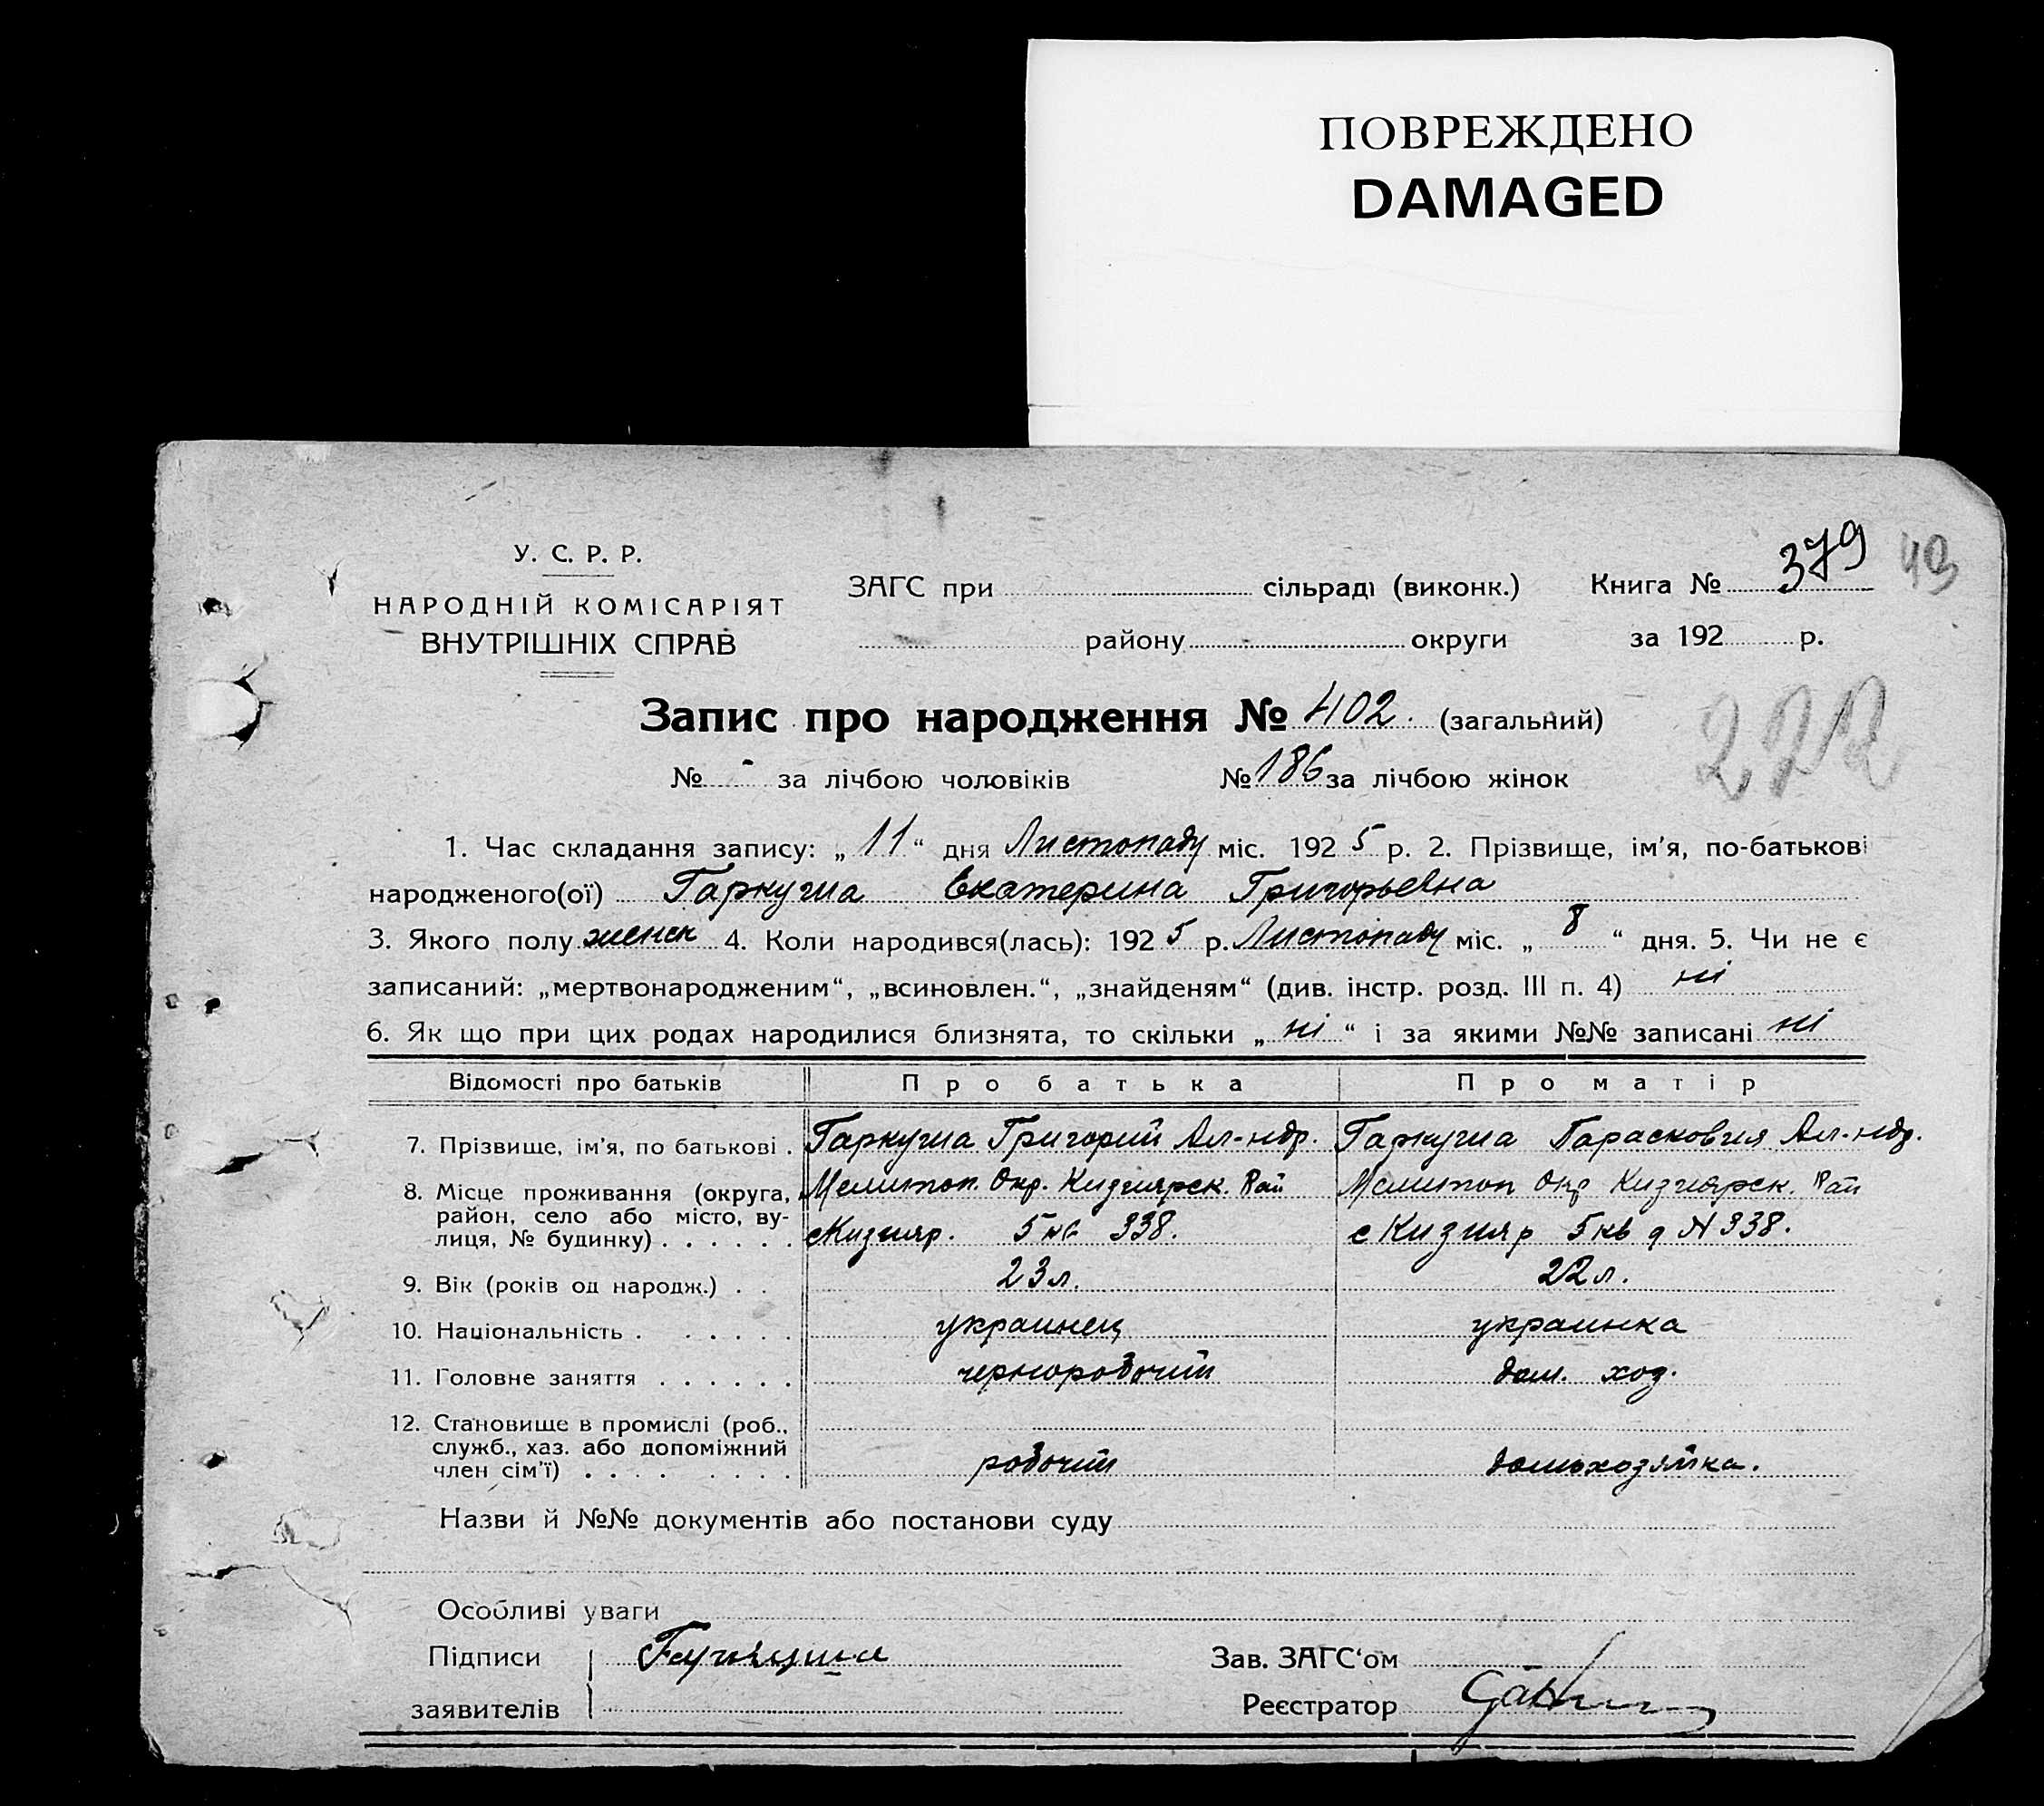 ПОВРЕЖДЕНО
DAMAGED
У. С. Р. Р.
НАРОДНІЙ КОМІСАРІЯТ
ВНУТРІШНІХ СПРАВ
ЗАГС при сільраді (виконк.) Книга № 379 43
району округи за 192 р.
Запис про народження № 402. (загальний)
272
№ - за лічбою чоловіків № 186 за лічбою жінок
1. Час складання запису: „ 11 “ дня Листопаду міс. 192 5 р. 2. Прізвище, ім'я, по-батькові
народженого(ої) Гаркуша Екатерина Григорьевна
3. Якого полу женск 4. Коли народився(лась): 192 5 р. Листопаду міс. „ 8 “ дня. 5. Чи не є
записаний: „мертвонародженим“, „всиновлен.“, „знайденям“ (див. інстр. розд. III п. 4) ні
6. Як що при цих родах народилися близнята, то скільки „ ні “ і за якими №№ записані ні
Відомості про батьків Про батька Про матір
7. Прізвище, ім'я, по батькові . Гаркуша Григорий Ал-ндр. Гаркуша Парасковия Ал-ндр.
8. Місце проживання (округа, Мелитоп. Окр. Кизиярск. Рай Мелитоп Окр Кизиярск. Рай
район, село або місто, ву-
лиця, № будинку) . . . . . . с Кизияр. 5 кв 338. с Кизияр 5 кв д N 338.
9. Вік (років од народж.) . . 23 л. 22 л.
10. Національність . . . . . . украинец украинка
11. Головне заняття . . . . . . чернорабочий дом. хоз.
12. Становище в промислі (роб.,
служб., хаз. або допоміжний
член сім'ї) . . . . . . . . рабочий домохозяйка.
Назви й №№ документів або постанови суду
Особливі уваги
Підписи Зав. ЗАГС‘ом
заявителів Реєстратор